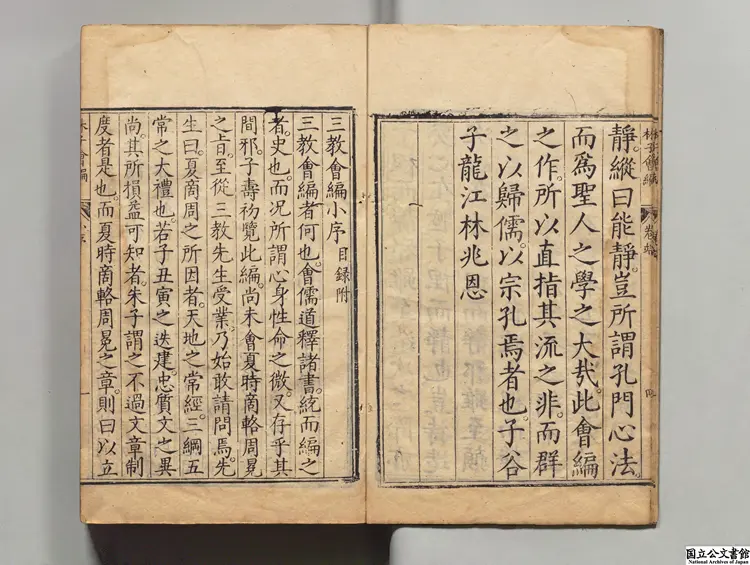 靜。縱曰能靜。豈所謂孔門心法。
而爲聖人之學之大㦲。此會編
之作。所以直指其流之非。而群
之以歸儒。以宗孔焉者也。子谷
子龍江林兆恩
三教會編小序 目録附
三教會編者何也。會儒道釋諸書。統而編之
者。史也。而况所謂心身性命之微。又存乎其
間邪。子壽初覽此編。尚未會夏時商輅周冕
之㫖。至從 三教先生受業。乃始敢請問焉。先
生曰。夏商周之所因者。天地之常經。三綱五
常之大禮也。若子丑寅之迭建。忠質文之異
尚。其所損益可知者。朱子謂之不過文章制
度者是也。而夏時商輅周冕之章。則曰以立
林子會編
國立公文書館
National Archives of Japan